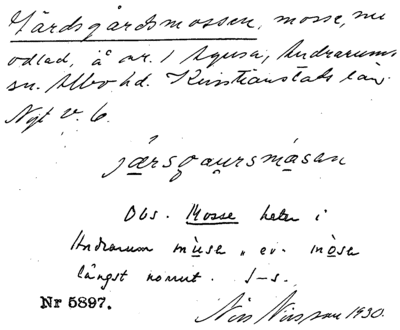 Gärdsgårdsmossen, mosse, nu
odlad, å nr. 1 Agusa, Andrarums
sn. Albo hd. Kristianstads län.
Nyt v. 6.
järsgaursmåsan
Obs. Mosse heter i
Andrarum mùse, ev. mòse
längst norrut. J-s.
Nr 5897. Nils Nilsson 1930.